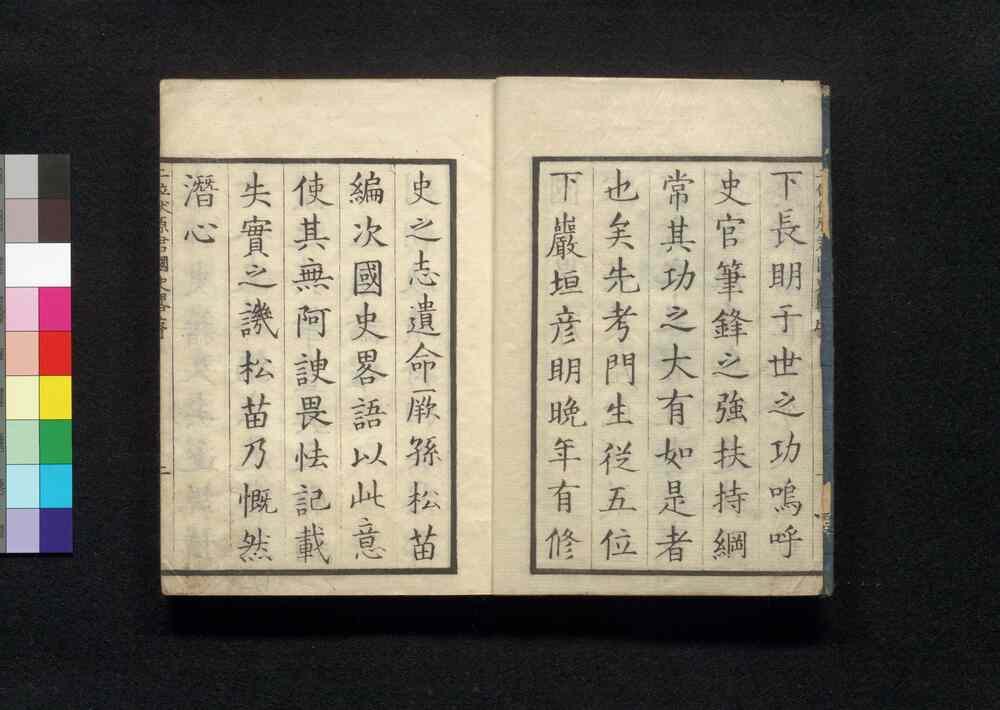 下長明于世之功嗚呼
史官筆鋒之強扶持綱
常其功之大有如是者
也矣先考門生従五位
下巖垣彦明晩年有修
史之志遺命厥孫松苗
編次國史畧語以此意
使其無阿諛畏怯記載
失實之譏松苗乃慨然
潛心